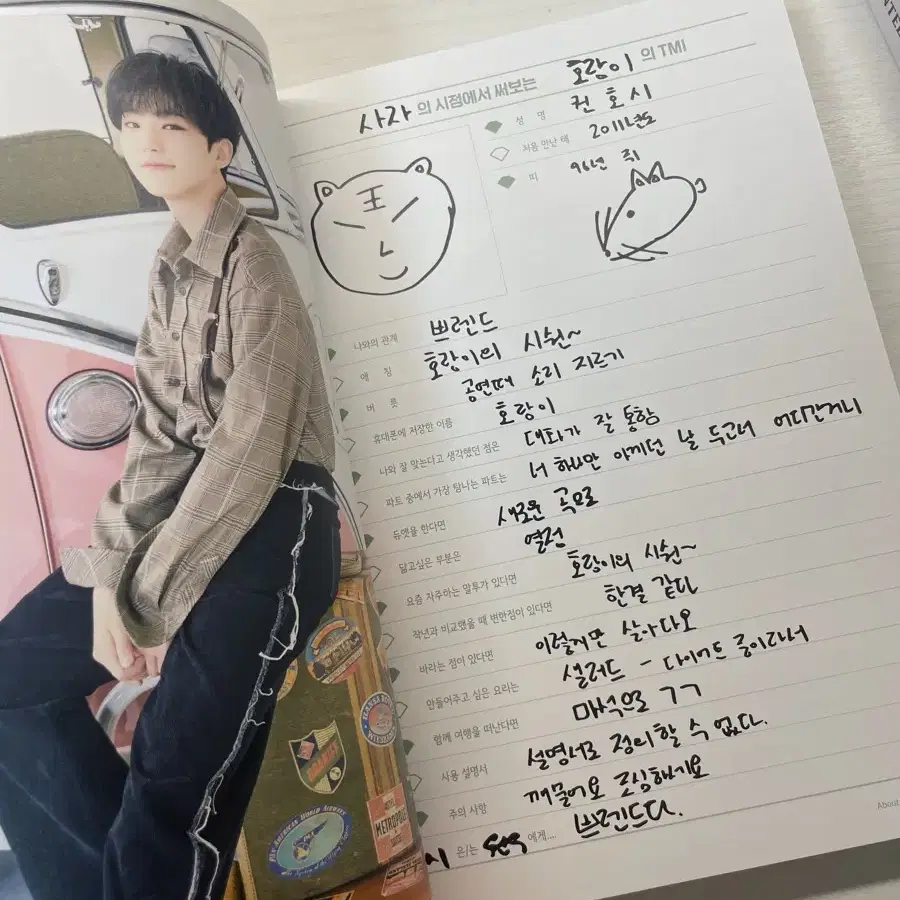 사라의 시점에서 써보는 호랑이의 TMI
성 명 권호시
처음 만난 해 2011년도
띠 96년 쥐
王
나와의 관계 쁘렌드
애 칭 호랑이의 시쉰~
버 릇 공연때 소리 지르기
휴대폰에 저장한 이름 호랑이
나와 잘 맞는다고 생각했던 점은 대화가 잘 통함
파트 중에서 가장 탐나는 파트는 너 하나만 아끼던 날 두고서 어디간거니
듀엣을 한다면 새로운 곡으로
닮고싶은 부분은 열정
요즘 자주하는 말투가 있다면 호랑이의 시쉰~
작년과 비교했을 때 변한점이 있다면 한결 같다
바라는 점이 있다면 이렇게만 살아다오
만들어주고 싶은 요리는 샐러드 - 다이어트 중이라서
함께 여행을 떠난다면 매석으로 ㄱㄱ
사용 설명서 설명서로 정의할 수 없다.
주의 사항 깨물어요 조심하세요
시 은/는 에게... 쁘렌드다.
About
PAN AMERICAN WORLD AIRWAYS
HOTEL
METROPOLE